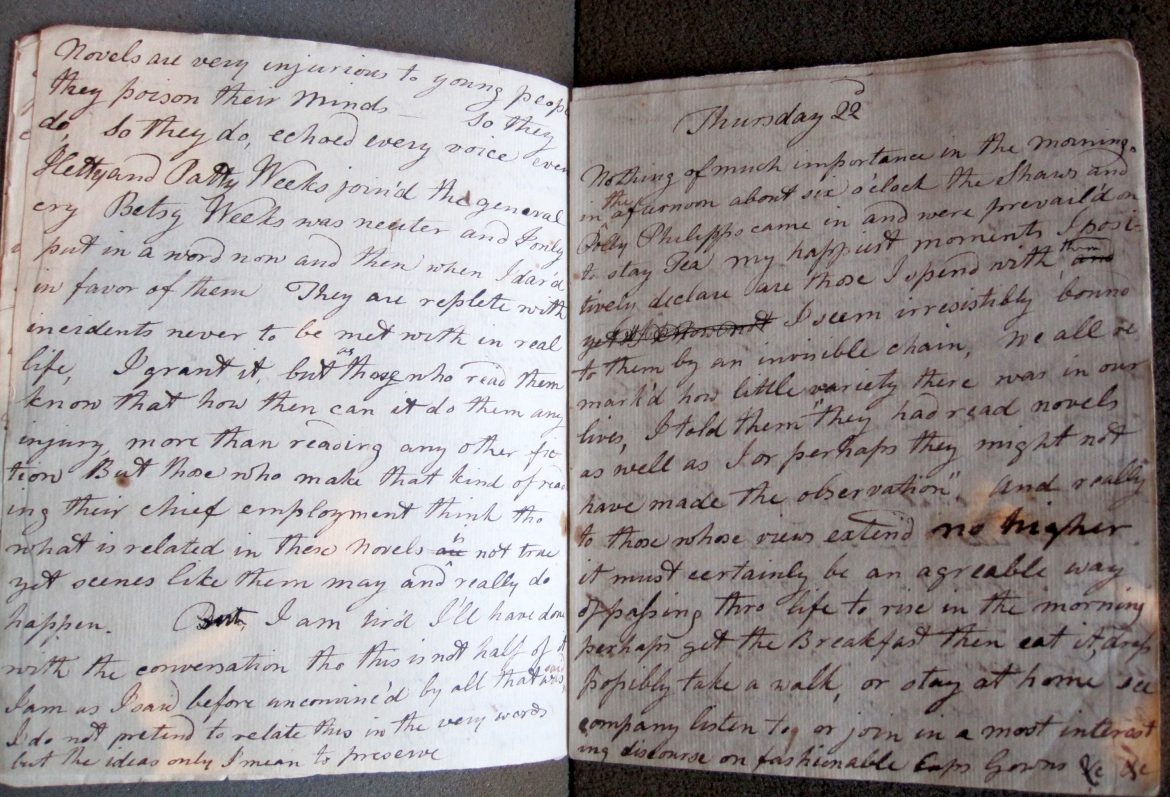 Novels are very injurious to young peope
they poison their minds — So they
do, so they do, echoed every voice even
Hetty and Patty Weeks join'd the general
cry Betsy Weeks was neuter and I only
put in a word now and then when I dar'd
in favor of them They are replete with
incidents never to be met with in real
life, I grant it, but as those who read them
know that how then can it do them any
injury, more than reading any other fic-
tion But those who make that kind of read
ing their chief employment think tho
what is related in these novels are is not true
yet scenes like them may and really do
happen. But, I am tir'd I'll have done
with the conversation tho this is not half of it
I am as I said before unconvinc'd by all that was said
I do not pretend to relate this in the very words
but the ideas only I mean to preserve
Thursday 22d
Nothing of much importance in the morning.
in the afternoon about six o'clock the Shaws and
Polly Philipps came in and were prevail'd on
to stay Tea my happiest moments I posi-
tively declare are those I spend with them and
yet I know not I seem irresistibly bound
to them by an invisible chain, We all re
mark'd how little variety there was in our
lives, I told them "they had read novels
as well as I or perhaps they might not
have made the observation", and really
to those whose views extend no higher
it must certainly be an agreable way
of passing thro life to rise in the morning
perhaps get the Breakfast then eat it, dress
possibly take a walk, or stay at home see
company listen to, or join in a most interest
ing discourse on fashionable Caps Gowns &c &c